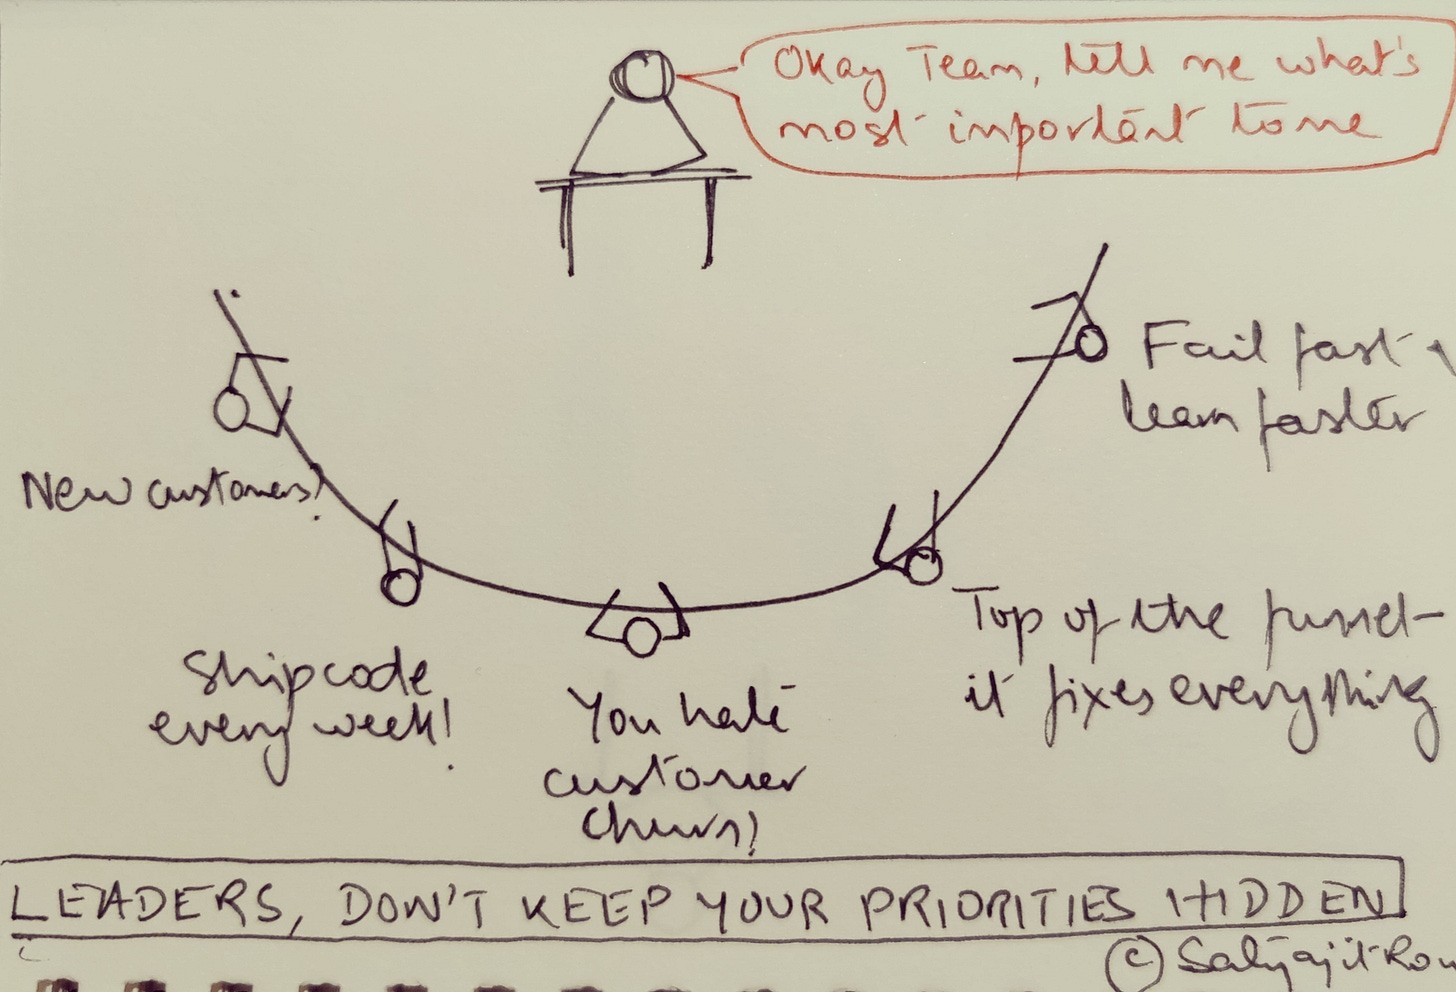 Okay Team, tell me what's
most important to me
Fail fast
learn faster
New customers?
Ship code
every week!
You hate
customer
churn?
Top of the funnel-
it fixes everything
LEADERS, DON'T KEEP YOUR PRIORITIES HIDDEN
© Satyajit Rou